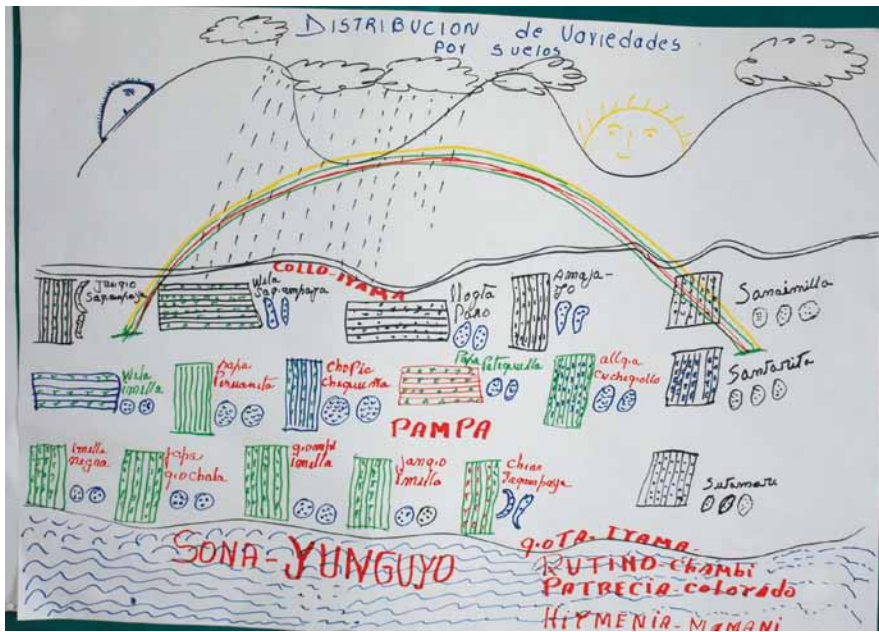 DISTRIBUCION de Variedades
por suelos
COLLO-IYAMA
Janqio
Saqampaya
Wila
Saqampaya
Paro
Amaja-
Sanaimilla
Wila
imilla
papa
Peruanita
Chopic
papa
Petiquilla
allqa
Santarita
PAMPA
imilla
negra
papa
qiochala
imilla
janqio
imilla
Chiar
Saqampaya
Sutamari
SONA-YUNGUYO
q.oTA-IYAMA
RUTINO-Chambi
PATRECIA-Colorado
HIYMENIA-MAMANI